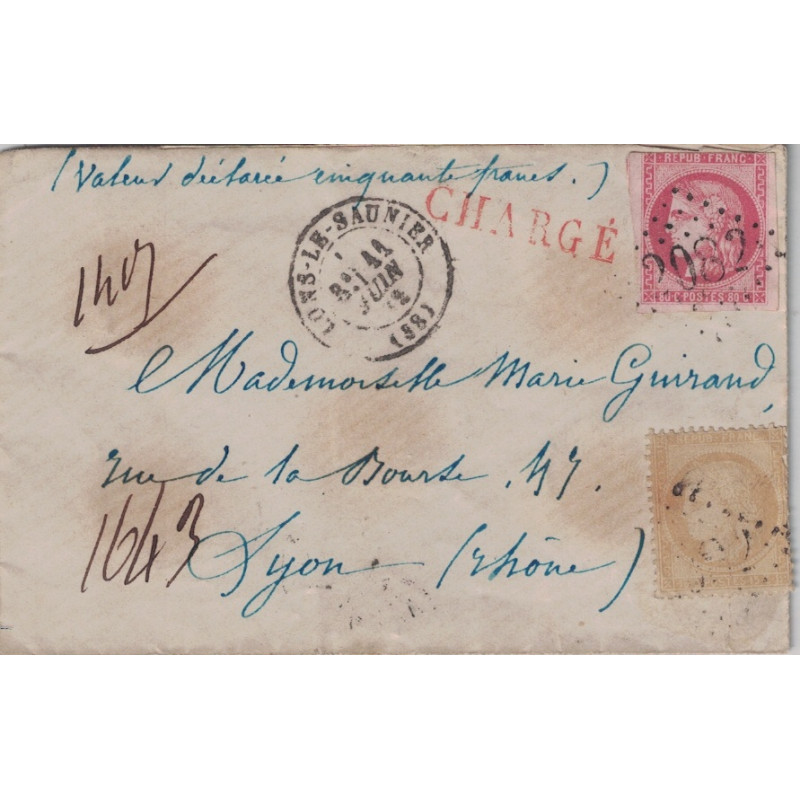 (Valeur déclarée cinquante francs.)
CHARGÉ
REPUB·FRANC
2082
80
LONS-LE-SAUNIER
11
JUIN
(38)
Mademoiselle Marie Guiraud,
rue de la Bourse . 47.
REPUB·FRANC
1643
Lyon (Rhône)